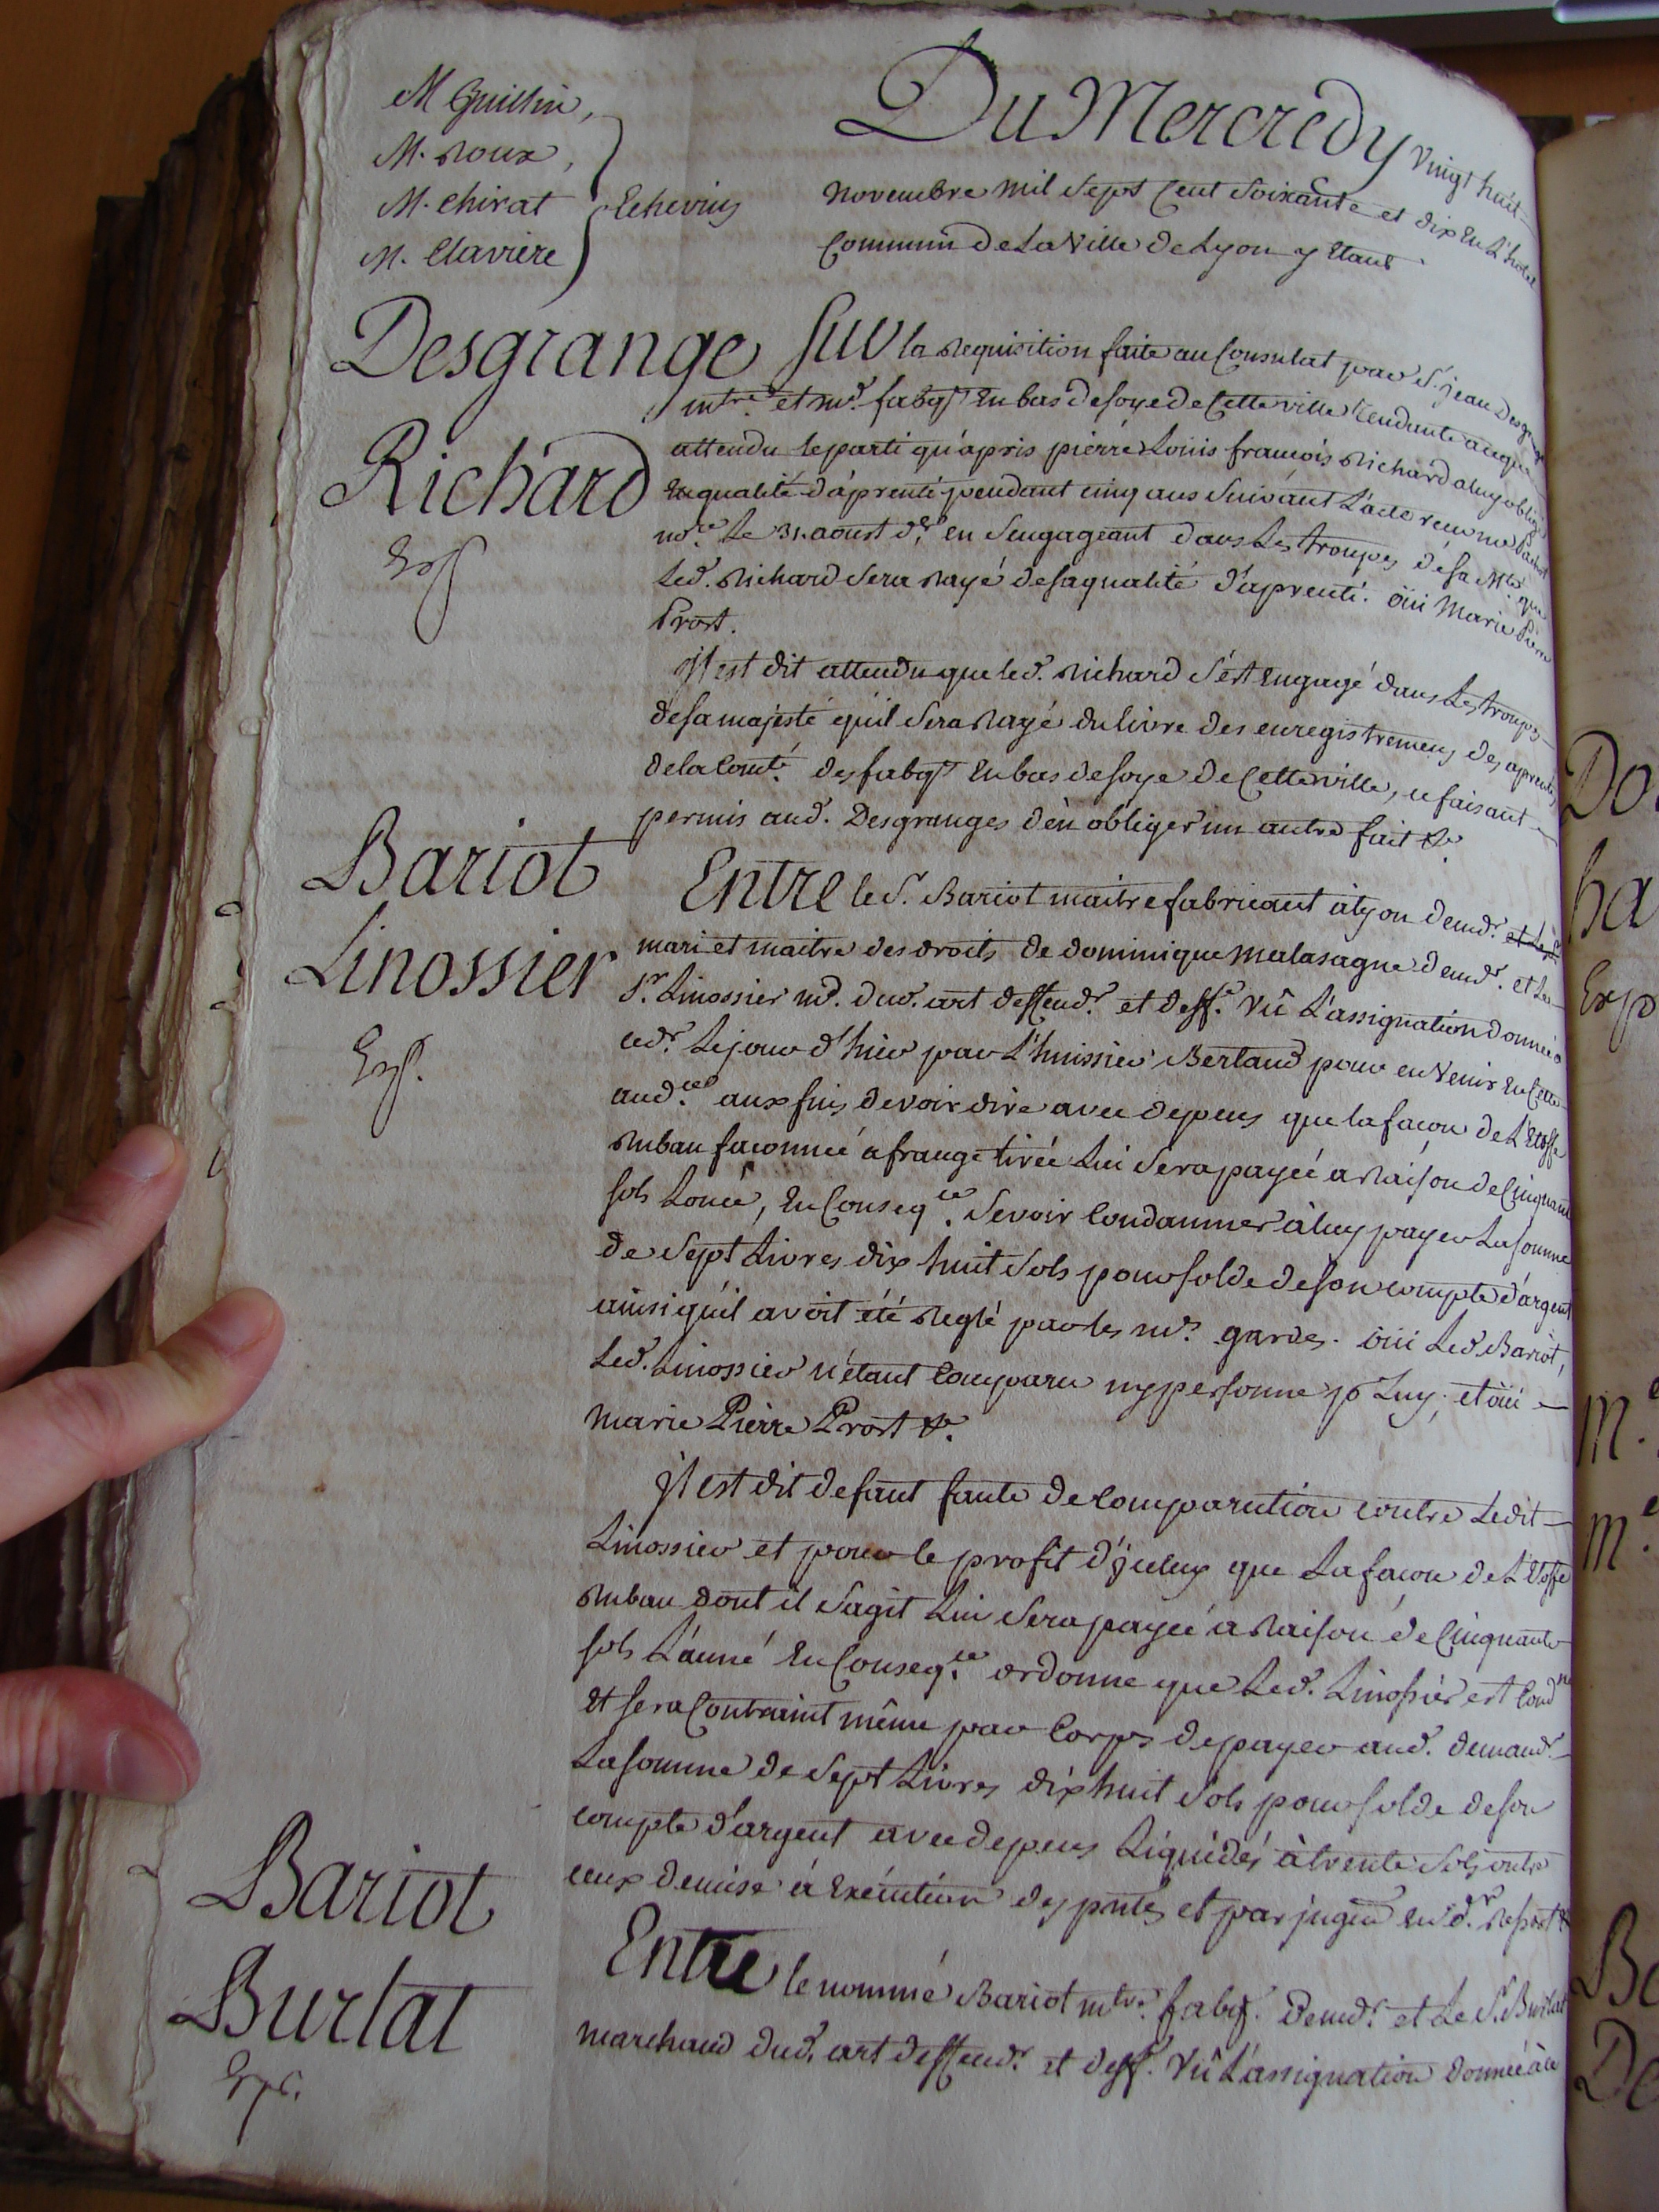 M Guillin,
M. Roux,
M. Chirat
M. Claviere
Echevins
Du Mercredy vingt huit
novembre mil sept cent soixante et dix En L'hotel
Commun de La Ville de Lyon y Etant
Desgrange
Richard
Exp
Sur la requisition faite au Consulat par S. jean Desgrange
mtre. et md. fabqt En bas de soye de Cette ville tendante a ceque
attendu le parti qu'a pris pierre Louis francois Richard a luy obligé
En qualité d'aprenti pendant cinq ans suivant L'acte recu me
nore. Le 31. aoust der. en s'engageant dans Les troupes de sa Mté. que
Led. Richard sera rayé de sa qualité d'aprenti. oüi Marie Pierre
Prost.
Il est dit attendu que led. Richard s'est Engagé dans Les troupes
de sa majesté qu'il sera rayé du livre des enregistremens des aprentis
de la Comté. des fabqt En bas de soye de Cette ville, ce faisant
permis aud. Desgranges d'en obliger un autre fait &.
Bariot
Linossier
Exp.
Entre le S. Bariot maitre fabricant à lyon demdr.
mari et maitre des droits de dominique malasagne demdr. et Le
Sr. Linossier md. dud. art deffendr. et deff. Vû L'assignation donnée
cedr. Le jour d'hier par L'huissier Bertaud pour en venir En Cette
audce. aux fins de voir dire avec depens que la facon de L'Etoffe
Ruban faconneé a frange tireé Lui sera payeé a raison de Cinquante
sols L'oneé, En Conseqce. se voir Condamner à luy payer La somme
de sept Livres dix huit sols pour solde de son compte d'argent
ainsi qu'il avoit été reglé par les mes. gardes. oüi Led. Bariot,
Led. Linossier n'étant Comparu ny personne pr Luy, et oüi
marie Pierre Prost &.
Il est dit defaut faute de Comparution contre Ledit
Linossier et pour le profit d'jceluy que La facon de L'Etoffe
Ruban dont il s'agit Lui sera payeé a raison de Cinquante
sols L'auné En Conseqce. ordonne que Led. Linossier est Condné
Et sera Contraint même par Corps de payer aud. demandr.
La somme de sept Livres dix huit sols pour solde de son
compte d'argent avec depens Liquidés à trente sols outre
ceux de mise à Exécution des pntes et par jugemt en dr. ressort &
Bariot
Burlat
Exp.
Entre le nommé Bariot mtre. fabqt. Demdr. et Le S. Burlat
marchand dud. art deffendr. et deff. Vû L'assignation donneé à ce